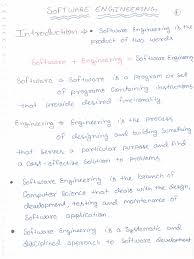 SOFTWARE ENGINEERING
Introduction → Software Engineering is the
product of two words
Software + Engineering = Software Engineering
Software → Software is a Program or set
of programs containing instructions
that provide desired functionality.
Engineering → Engineering is the process
of designing and building something
that serves a particular purpose and find
a cost-effective solution to problems.
• Software Engineering is the branch of
Computer Science that deals with the design,
development, testing and maintenance of
Software application.
• Software Engineering is a Systematic and
disciplined approach to Software development